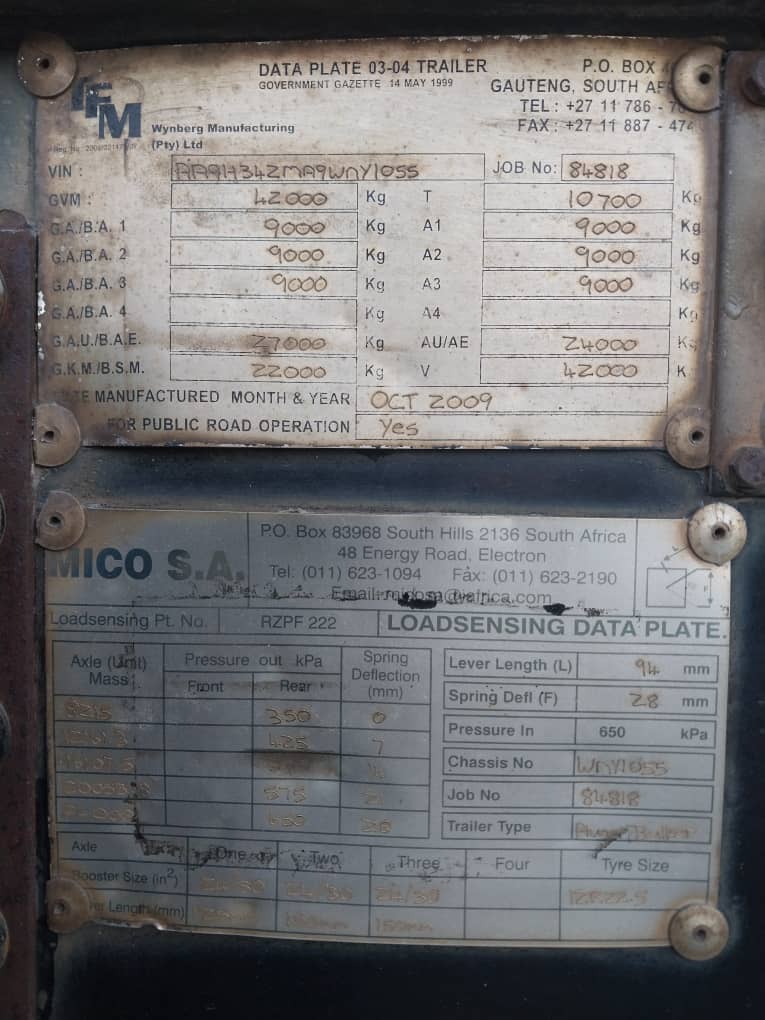 DATA PLATE 03-04 TRAILER
GOVERNMENT GAZETTE 14 MAY 1999
P.O. BOX
GAUTENG, SOUTH
TEL : +27 11 786 -
FAX : +27 11 887 - 474
Wynberg Manufacturing
(Pty) Ltd
VIN : JOB No: 84818
GVM : 42000 Kg T 10700 Kg
G.A./B.A. 1 9000 Kg A1 9000 Kg
G.A./B.A. 2 9000 Kg A2 9000 Kg
G.A./B.A. 3 9000 Kg A3 9000 Kg
G.A./B.A. 4 Kg A4 Kg
G.A.U./B.A.E. 27000 Kg AU/AE 24000 Kg
G.K.M./B.S.M. 22000 Kg V 42000 K
MANUFACTURED MONTH & YEAR OCT 2009
FOR PUBLIC ROAD OPERATION Yes
MICO S.A.
P.O. Box 83968 South Hills 2136 South Africa
48 Energy Road, Electron
Tel: (011) 623-1094 Fax: (011) 623-2190
Loadsensing Pt. No. RZPF 222 LOADSENSING DATA PLATE.
Axle (Unit) Mass Pressure out kPa Front Rear Spring Deflection (mm)
350 0
425 7
575 21
28
Lever Length (L) 94 mm
Spring Defl (F) 28 mm
Pressure In 650 kPa
Chassis No WNY1055
Job No 84818
Trailer Type
Axle One Two Three Four Tyre Size
Booster Size (in²) 24/30 24/30 24/30
Length (mm)